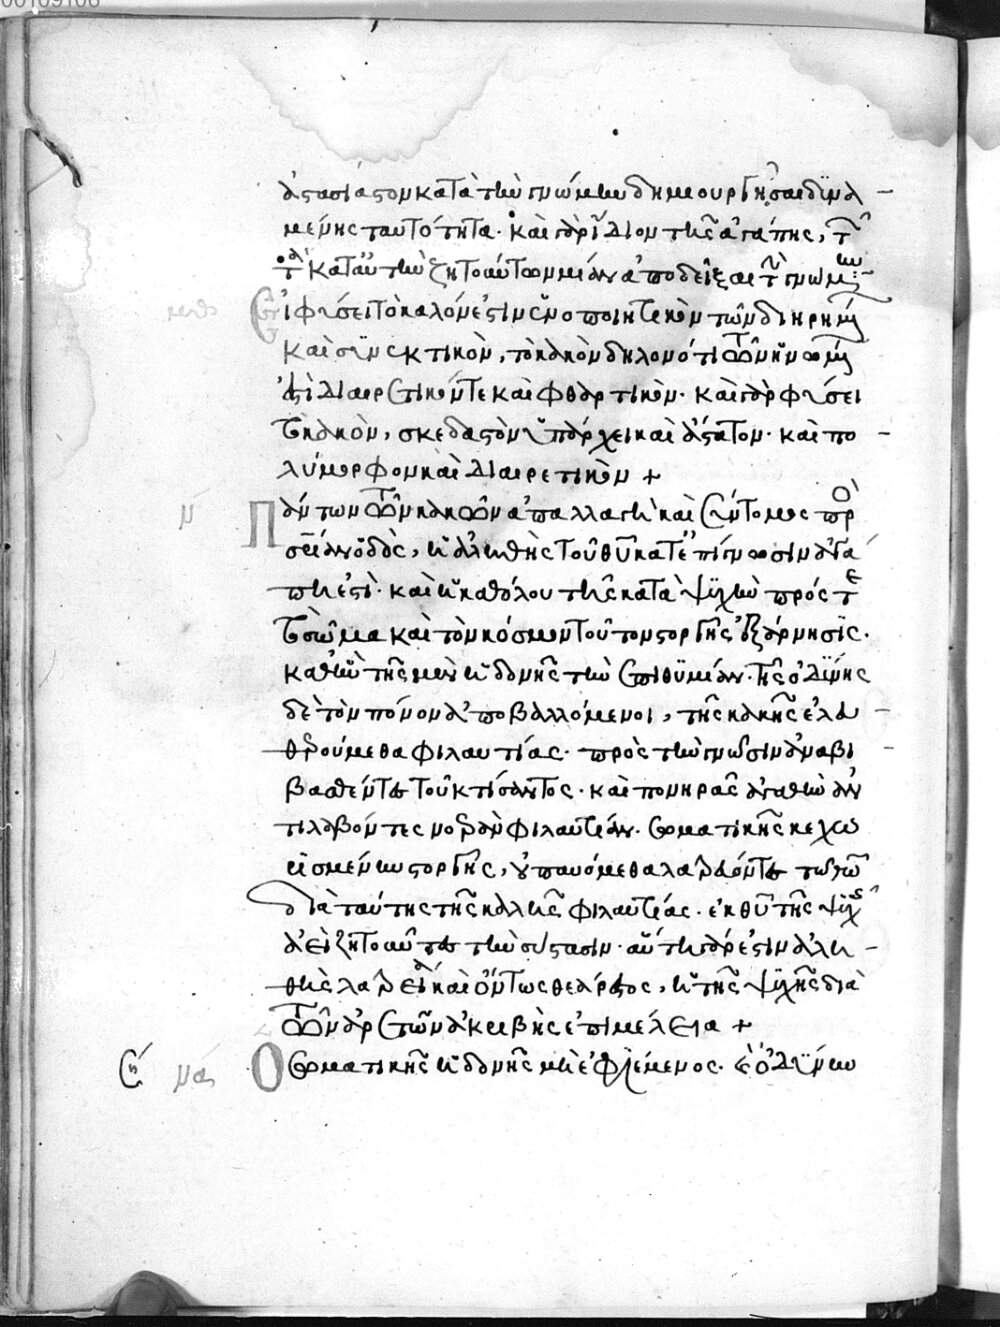 ἀστασίαστον κατὰ τὴν γνώμην δημιουργῆσαι δυνα
μένης ταυτότητα· καὶ γὰρ ἴδιον τῆς ἀγάπης, τ
κατ' αὐτὴν ζητοῦντων μίαν ἀποδεῖξαι γνώμην
Εἰ φύσει τὸ καλόν ἐστιν ἑνοποιητικὸν τῶν διῃρημ
καὶ συνεκτικὸν, τὸ κακὸν δηλονότι τῶν ἡνωμ
ἐστὶ διαιρετικόν τε καὶ φθαρτικόν· καὶ γὰρ φύσει
τὸ κακὸν, σκεδαστὸν ὑπάρχει καὶ ἄστατον· καὶ πο
λύμορφον καὶ διαιρετικὸν +
μ Πάντων τῶν κακῶν ἀπαλλαγὴ καὶ σύντομος πρ
σωτηρίαν ὁδὸς, ἡ ἀληθὴς τοῦ θυ κατ' ἐπίγνωσιν ἀγά
πη ἐστὶ· καὶ ἡ καθόλου τῆς κατὰ ψυχὴν πρός τε
τὸ σῶμα καὶ τὸν κόσμον τοῦτον στοργῆς ἐξάρνησις·
καθ' ἣν τῆς μὲν ἡδονῆς τὴν ἐπιθυμίαν· τῆς ὀδύνης
δὲ τὸν πόνον ἀποβαλλόμενοι, τῆς κακῆς ἐλευ
θερούμεθα φιλαυτίας· πρὸς τὴν γνῶσιν ἀναβι
βασθέντες τοῦ κτίσαντος· καὶ πονηρᾶς ἀγαθὴν ἀν
τιλαβόντες νοερὰν φιλαυτίαν· σωματικῆς κεχω
ρισμένην στοργῆς, οὐ παυόμεθα λατρεύοντες τῷ θῶ
διὰ ταύτης τῆς καλῆς φιλαυτίας· ἐκ θυ τῆς ψυχ
ἀεὶ ζητοῦντες τὴν σύστασιν· αὕτη γάρ ἐστιν ἀλη
θὴς λατρεία καὶ ὄντως θεάρεστος, ἡ τῆς ψυχῆς διὰ
τῶν ἀρετῶν ἀκριβὴς ἐπιμέλεια +
μα Ὁ σωματικῆς ἡδονῆς μὴ ἐφιέμενος· καὶ ὀδύνην